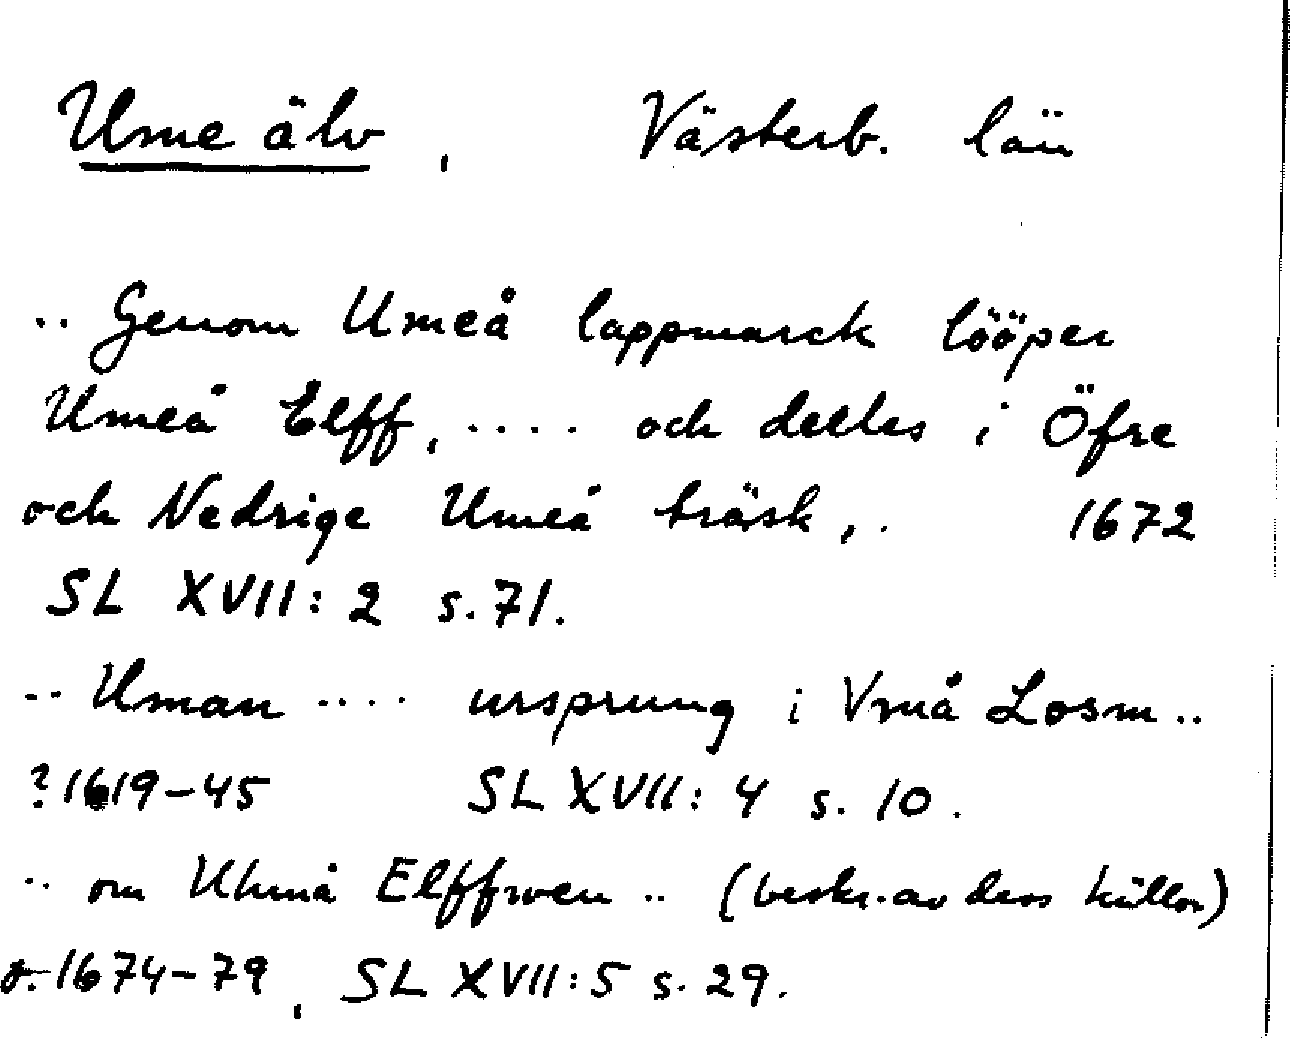 Ume älv, Västerb. län
.. Genom Umeå lappmarck lööper
Umeå Elff, .... och deeles i Öfre
och Nedrige Umeå träsk, . 1672
SL XVII: 2 s. 71.
.. Uman .... ursprung i Vmå Losm ..
? 1619-45 SL XVII: 4 s. 10.
.. om Uhmå Elffwen .. (beskr. av dess källor)
1674-79, SL XVII: 5 s. 29.